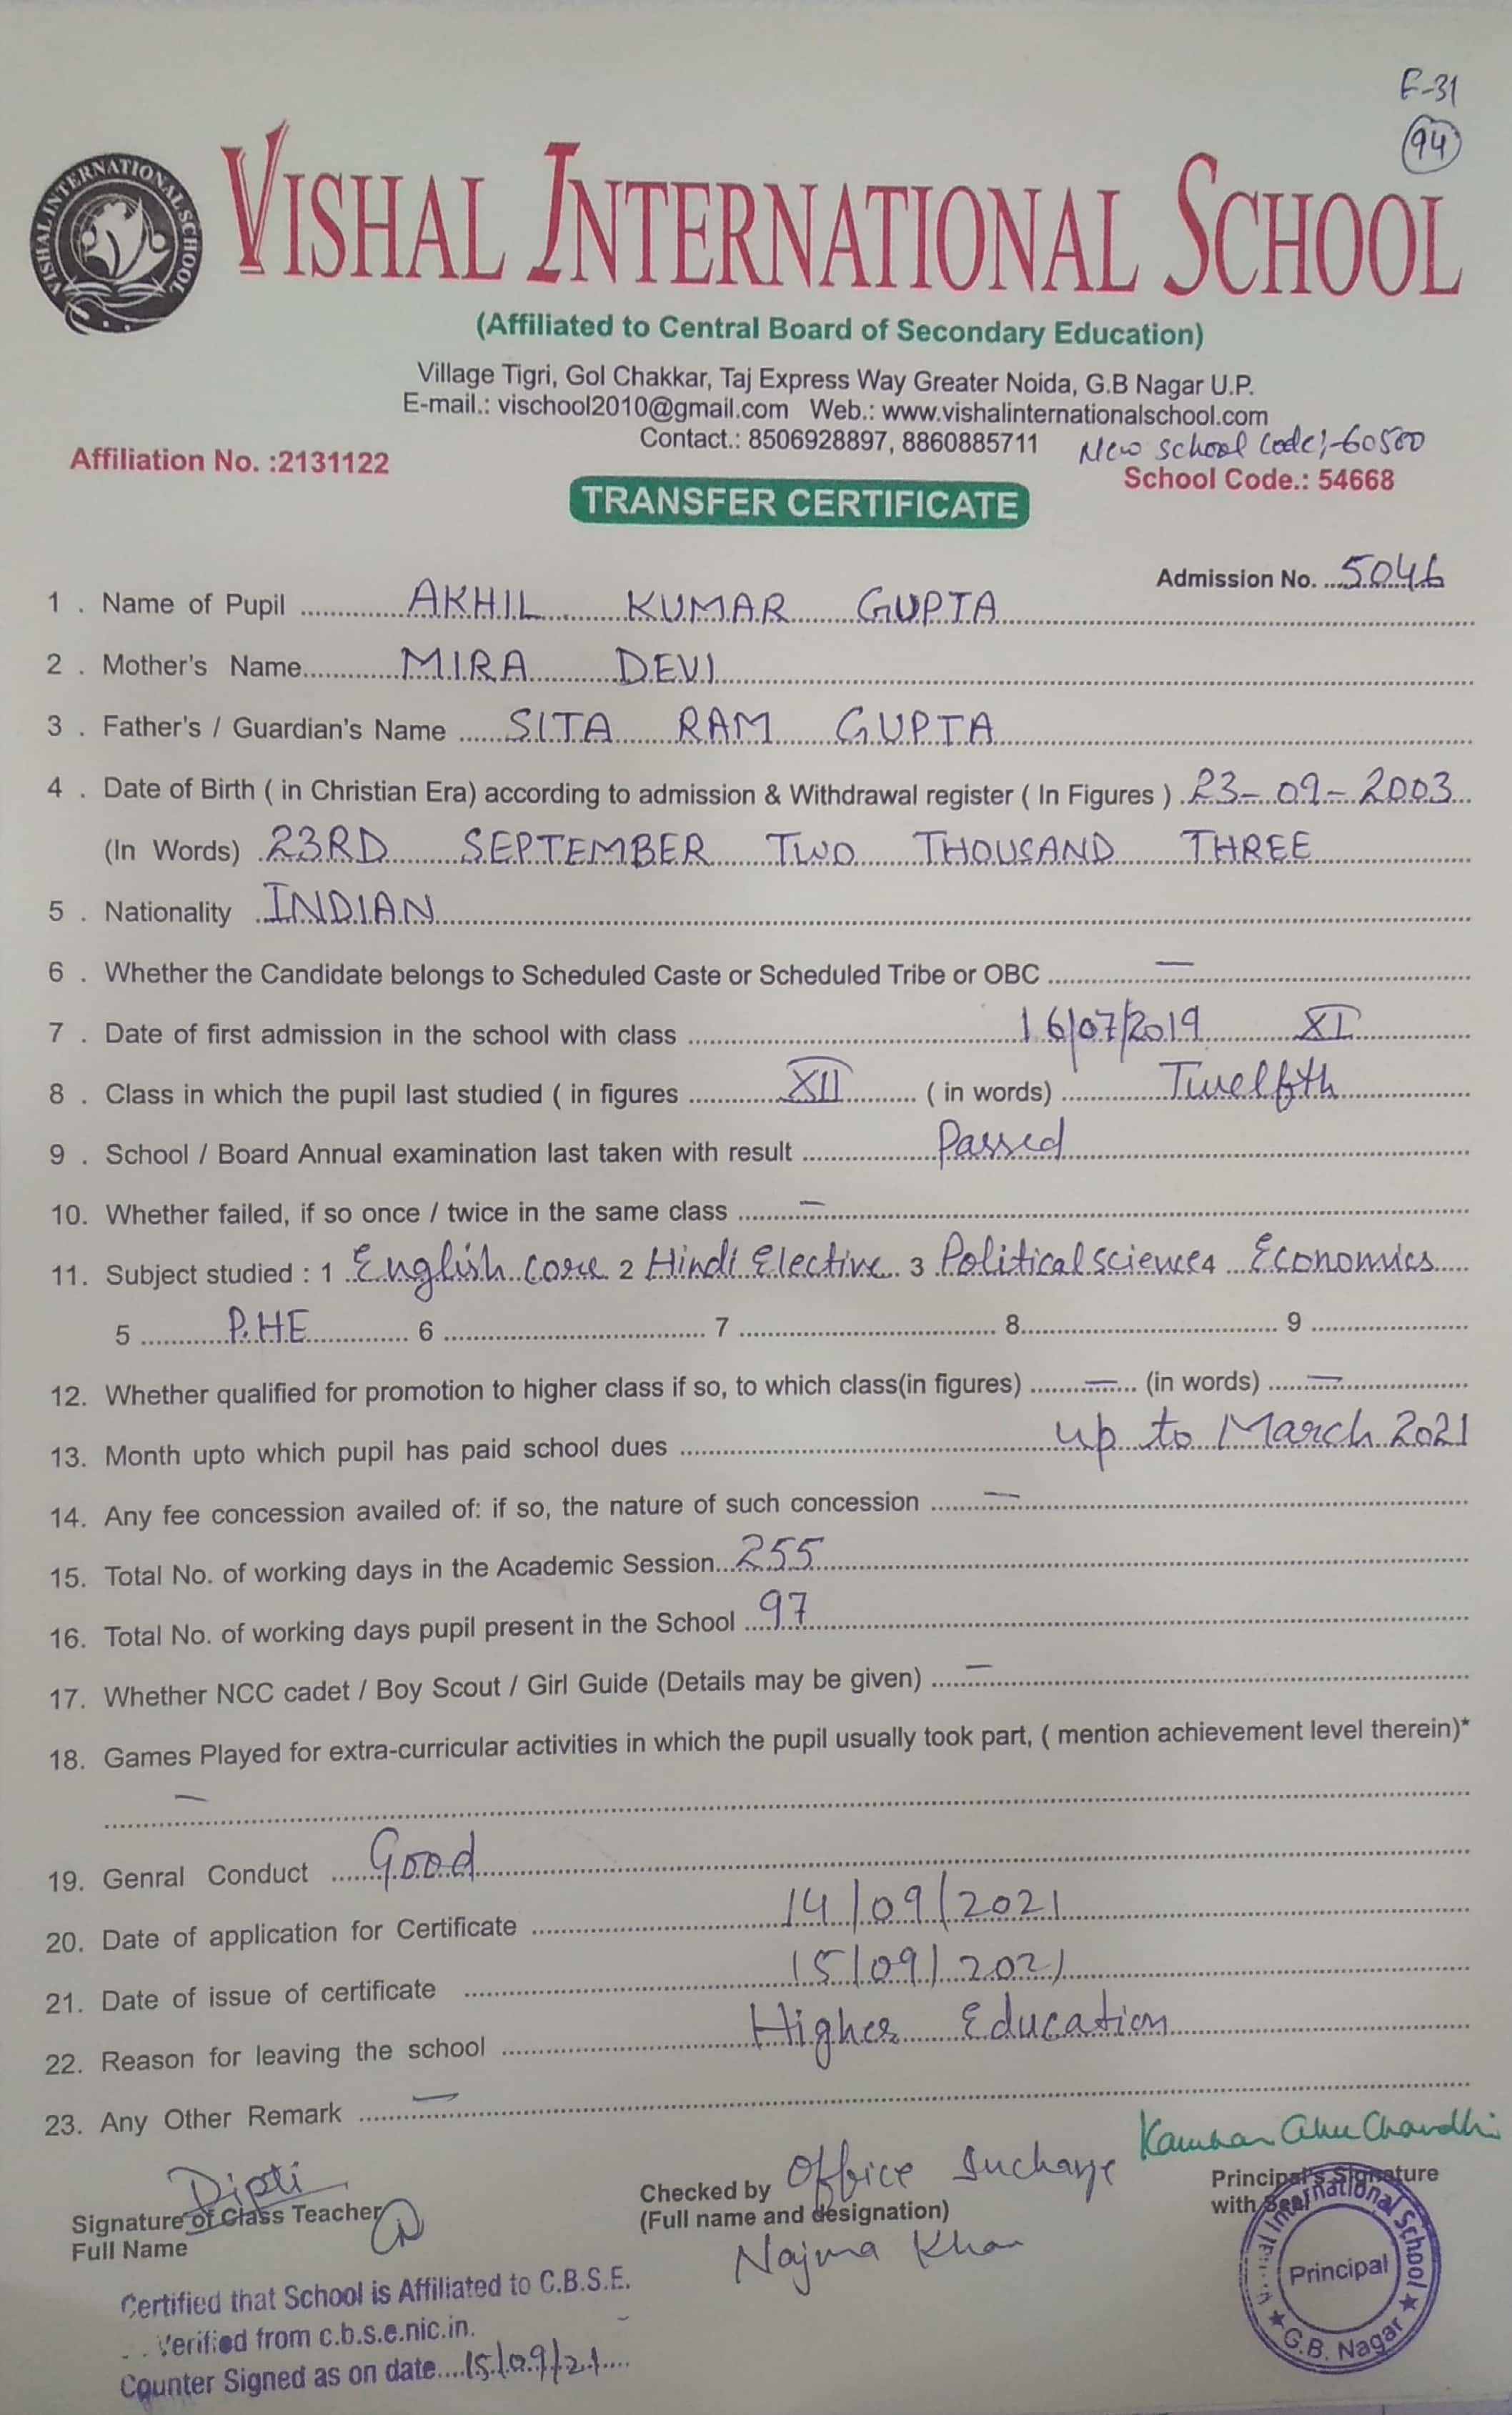 F-31
94
VISHAL INTERNATIONAL SCHOOL
VISHAL INTERNATIONAL SCHOOL
(Affiliated to Central Board of Secondary Education)
Village Tigri, Gol Chakkar, Taj Express Way Greater Noida, G.B Nagar U.P.
E-mail.: vischool2010@gmail.com Web.: www.vishalinternationalschool.com
Contact.: 8506928897, 8860885711 New school Code:-60500
Affiliation No. :2131122 School Code.: 54668
TRANSFER CERTIFICATE
Admission No. 5046
1 . Name of Pupil AKHIL KUMAR GUPTA
2 . Mother's Name MIRA DEVI
3 . Father's / Guardian's Name SITA RAM GUPTA
4 . Date of Birth ( in Christian Era) according to admission & Withdrawal register ( In Figures ) 23-09-2003
(In Words) 23RD SEPTEMBER TWO THOUSAND THREE
5 . Nationality INDIAN
6 . Whether the Candidate belongs to Scheduled Caste or Scheduled Tribe or OBC —
7 . Date of first admission in the school with class 16/07/2019 XI
8 . Class in which the pupil last studied ( in figures XII ( in words) Twelfth
9 . School / Board Annual examination last taken with result Passed
10. Whether failed, if so once / twice in the same class —
11. Subject studied : 1 English core 2 Hindi Elective 3 Political science 4 Economics
5 P.HE 6 7 8 9
12. Whether qualified for promotion to higher class if so, to which class(in figures) — (in words) —
13. Month upto which pupil has paid school dues up to March 2021
14. Any fee concession availed of: if so, the nature of such concession —
15. Total No. of working days in the Academic Session 255
16. Total No. of working days pupil present in the School 97
17. Whether NCC cadet / Boy Scout / Girl Guide (Details may be given) —
18. Games Played for extra-curricular activities in which the pupil usually took part, ( mention achievement level therein)*
—
19. Genral Conduct Good
20. Date of application for Certificate 14/09/2021
21. Date of issue of certificate 15/09/2021
22. Reason for leaving the school Higher Education
23. Any Other Remark —
Dipti
Signature of Class Teacher
Full Name
Checked by Office Incharge
(Full name and designation)
Najma Khan
Principal's Signature
with Seal
International School
Principal
G.B. Nagar
Certified that School is Affiliated to C.B.S.E.
Verified from c.b.s.e.nic.in.
Counter Signed as on date....15/09/21....